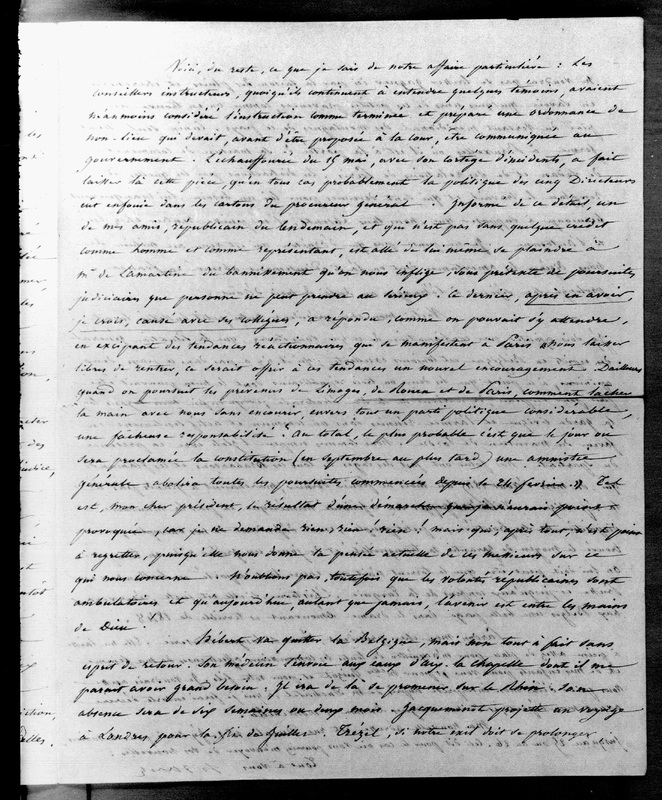 Voici, du reste, ce que je sais de notre affaire particulière : Les
conseillers instructeurs, quoiqu'ils continuent à entendre quelques témoins, avaient
néanmoins considéré l'instruction comme terminée et préparé une ordonnance de
non-lieu qui devait, avant d'être proposée à la cour, être communiquée au
gouvernement. L'échauffourée du 15 mai, avec son cortège d'incidents, a fait
laisser là cette pièce, qu'en tous cas probablement la politique des cinq Directeurs
eut enfouie dans les cartons du procureur général. Informé de ce détail, un
de mes amis, républicain du lendemain, et qui n'est pas sans quelque crédit
comme homme et comme représentant, est allé de lui même se plaindre à
Mr de Lamartine du bannissement qu'on nous inflige, sous prétexte de poursuites
judiciaires que personne ne peut prendre au sérieux : ce dernier, après en avoir,
je crois, causé avec ses collègues, a répondu, comme on pouvait s'y attendre,
en excipant des tendances réactionnaires qui se manifestent à Paris : nous laisser
libres de rentrer, ce serait offrir à ces tendances un nouvel encouragement. D'ailleurs
quand on poursuit les prévenus de Limoges, de Rouen et de Paris, comment lâcher
la main avec nous sans encourir, envers tout un parti politique considérable,
une fâcheuse responsabilité ? Au total, le plus probable c'est que le jour où
sera proclamée la constitution (en septembre au plus tard) une amnistie
générale abolira toutes les poursuites commencées depuis le 24 février. » Tel
est, mon cher président, le résultat d'une démarche que je n'aurais point
provoquée, car je ne demande rien, rien ! rien ! mais qui, après tout, n'est point
à regretter, puisqu'elle nous donne la pensée actuelle de ces messieurs sur ce
qui nous concerne. N'oublions pas, toutefois que les volontés républicaines sont
ambulatoires et qu'aujourd'hui autant que jamais, l'avenir est entre les mains
de Dieu.
Hébert va quitter la Belgique, mais non tout à fait sans
esprit de retour. Son médecin l'envoie aux eaux d'Aix-la-Chapelle dont il me
parait avoir grand besoin. Il ira de là se promener sur le Rhin. Son
absence sera de six semaines ou deux mois. Jacqueminot projette un voyage
à Londres pour la fin de Juillet. Trézel, si notre exil doit se prolonger